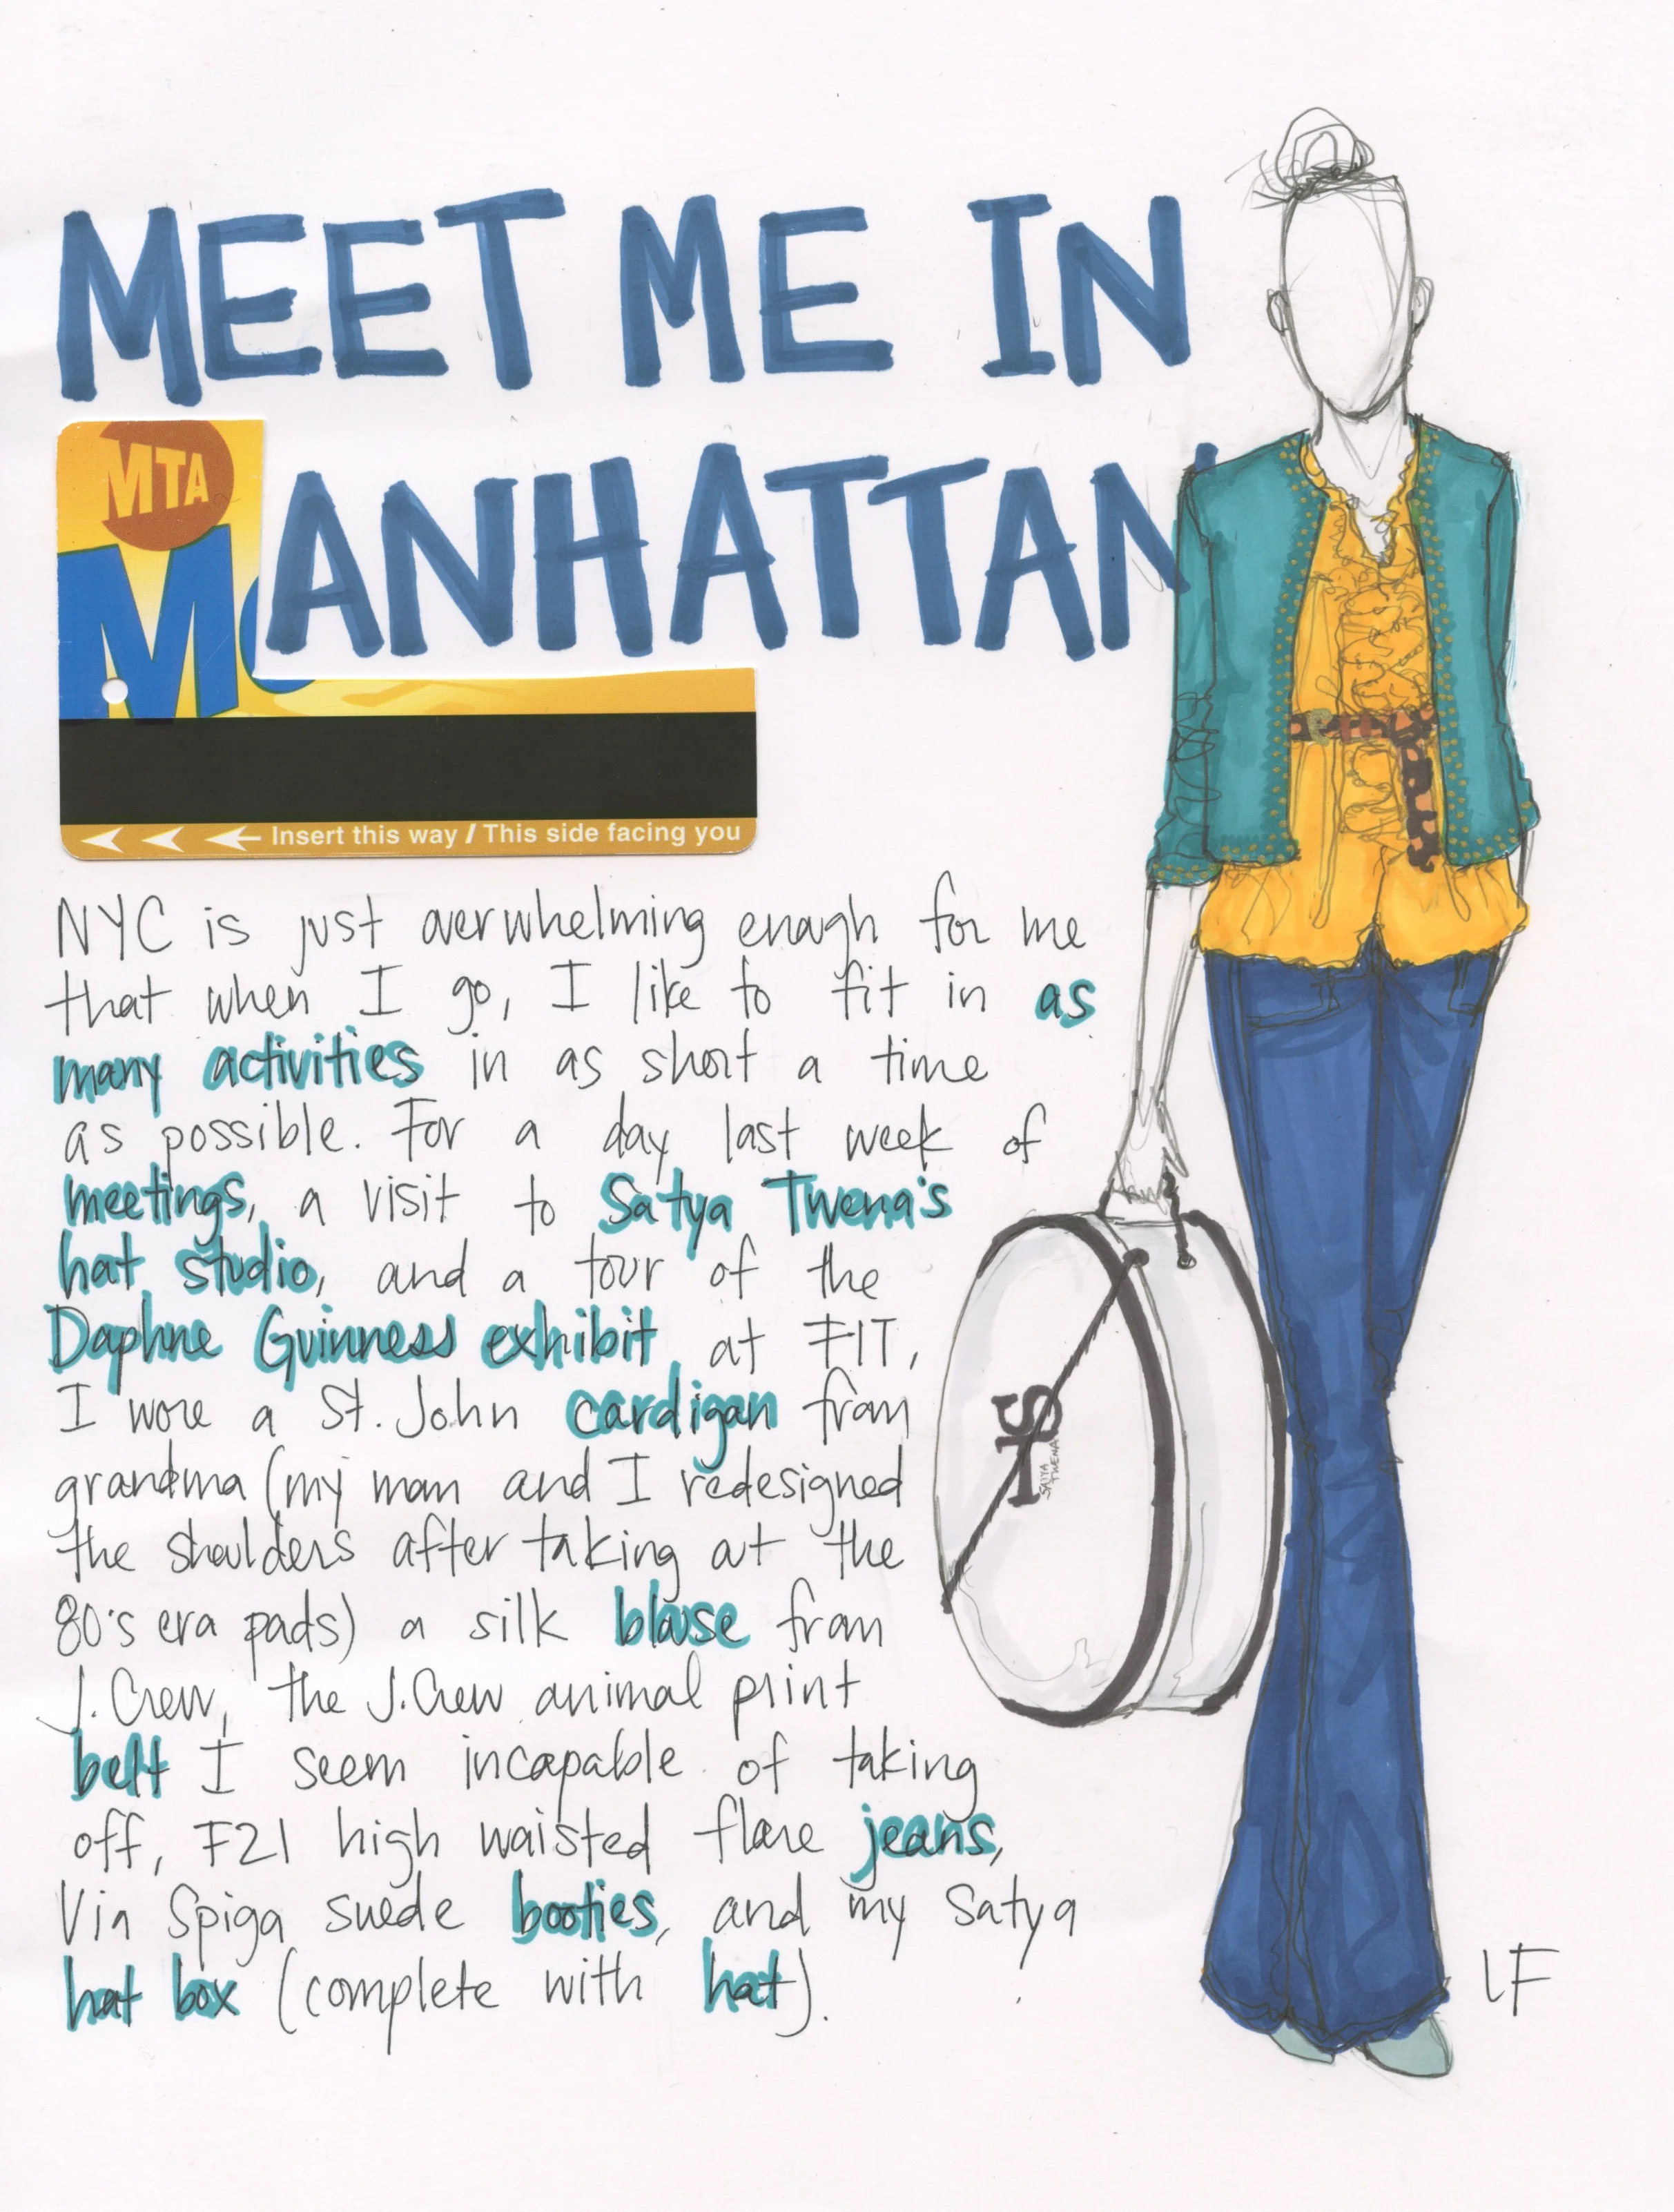 MEET ME IN
MANHATTAN
MTA
Insert this way / This side facing you
NYC is just overwhelming enough for me
that when I go, I like to fit in as
many activities in as short a time
as possible. For a day last week of
meetings, a visit to Satya Twena's
hat studio, and a tour of the
Daphne Guinness exhibit at FIT,
I wore a St. John cardigan from
grandma (my mom and I redesigned
the shoulders after taking out the
80's era pads) a silk blouse from
J.Crew, the J.Crew animal print
belt I seem incapable of taking
off, F21 high waisted flare jeans,
Via Spiga suede booties, and my Satya
hat box (complete with hat).
TS
SATYA
TWENA
LF